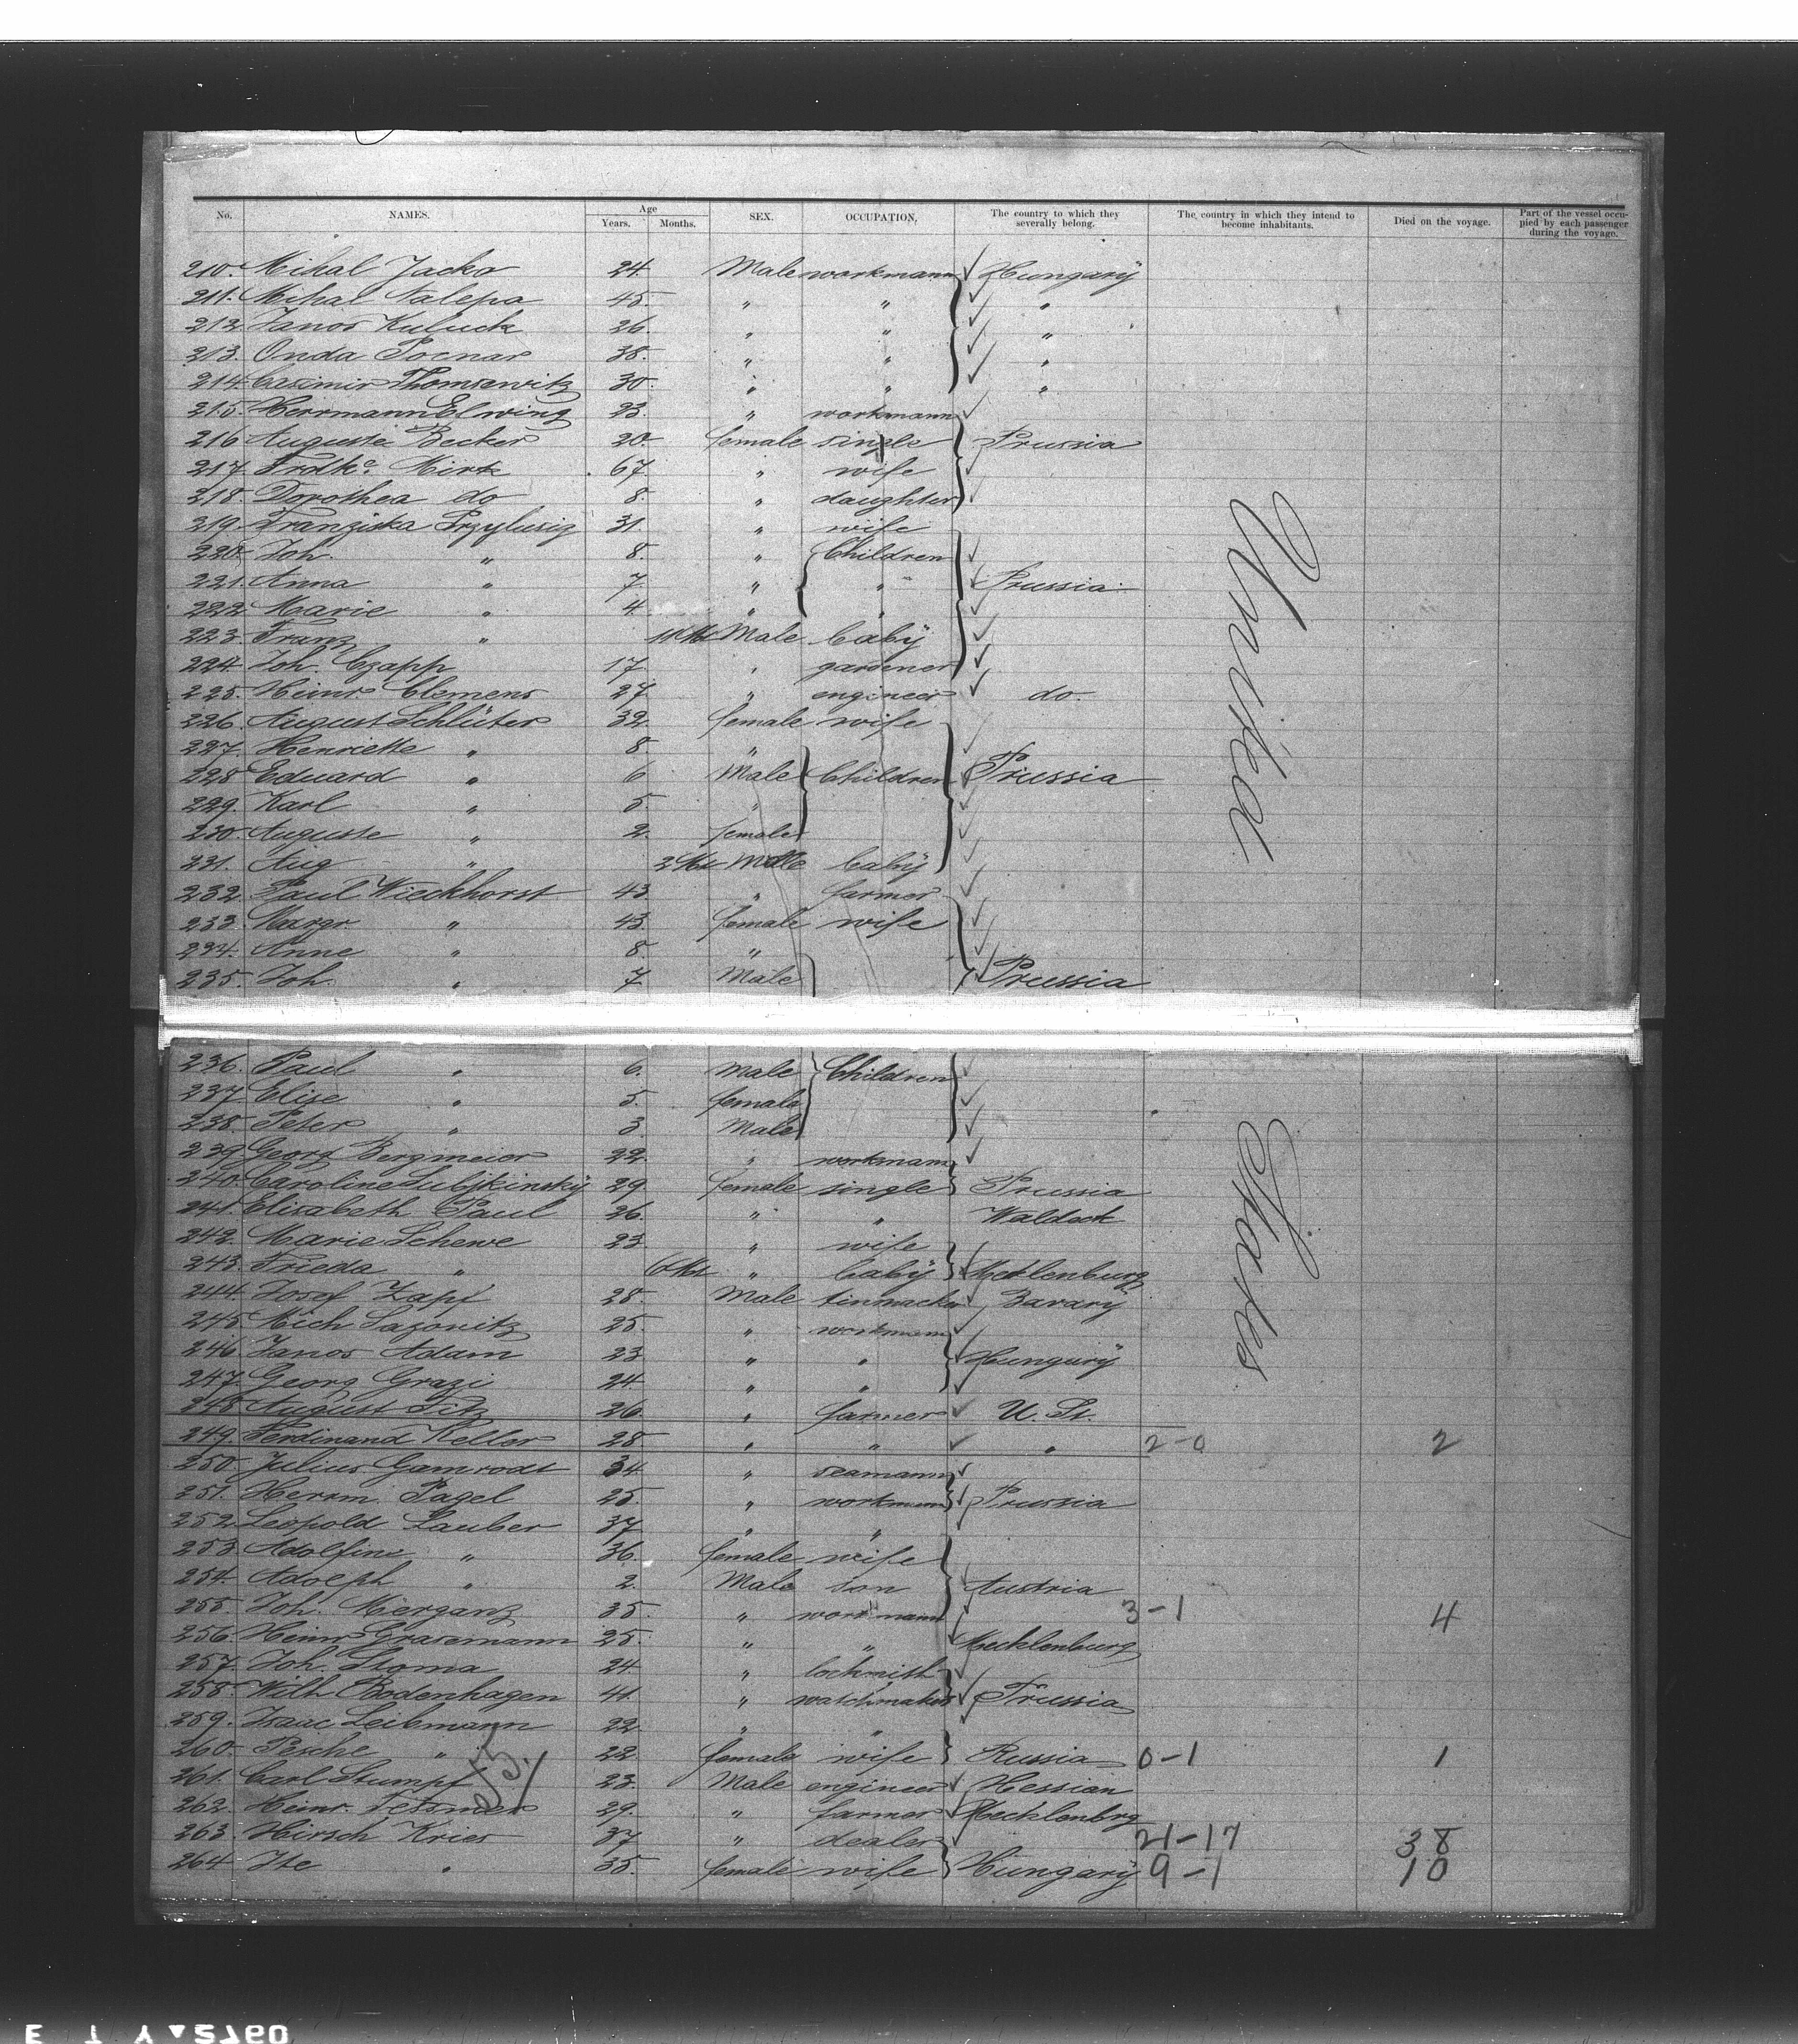 No. NAMES. Age Years. Months. SEX. OCCUPATION, The country to which they severally belong. The country in which they intend to become inhabitants. Died on the voyage. Part of the vessel occupied by each passenger during the voyage.
210. Mihal Jacko 24. Male workmann Hungary
211. Mihal Nalepa 45. " " "
212. Janos Kuluck 26. " " "
213. Onda Pocnar 38. " " "
214. Casimir Thomsewitz 30. " " "
215. Herrmann Elwing 23. " workmann
216. Auguste Becker 20. female single Prussia
217. Frdke. Mirk 67. " wife
218. Dorothea do 8. " daughter
219. Franziska Przylusig 31. " wife
220. Joh. " 8. " Children
221. Anna " 7. " " Prussia
222. Marie " 4. " "
223. Franz " 11 Mt Male baby
224. Joh. Czapp 17. " gardener
225. Heinr Clemens 27. " engineer do.
226. August Schlüter 32. female wife
227. Henriette " 8. "
228. Eduard " 6 Male Children Prussia
229. Karl " 5. "
230. Auguste " 2. female
231. Aug " 3 Mt Male baby
232. Paul Wieckhorst 43 " farmer
233. Margr " 43. female wife
234. Anne " 8. "
235. Joh. " 7 Male Prussia
United
236. Paul " 6. Male Children
237. Elise " 5. female
238. Peter " 3. Male
239. Georg Bergmeier 22. " workmann
240. Caroline Lubjkinsky 29. female single Prussia
241. Elisabeth Paul 26. " " Waldeck
242. Marie Schewe 23. " wife
243. Frieda " 6 Mt " baby Mecklenburg
244. Josef Zapf 28. Male tinmacker Bavary
245. Mich Lazovitz 25. " workmann
246. Janos Adam 23 " " Hungary
247. Georg Grazi 24. " "
248. August Titz 26. " farmer U. St.
249. Ferdinand Keller 28. " " " 2-0 2
250. Julius Gamrodt 34. " seamann
251. Herrm. Pagel 25. " workmann Prussia
252. Leopold Lauber 37 " "
253. Adolfine " 36. female wife
254. Adolph " 2. Male son Austria
255. Joh. Merganz 35. " workmann 3-1 4
256. Heinr Grasemann 25. " " Mecklenburg
257. Joh. Stoma 24. " lochmith
258. Wilh Rodenhagen 41. " watchmaker Prussia
259. Isaac Leibmann 22. " "
260. Pesche " 22. female wife Russia 0-1 1
261. Carl Stumpf 23. Male engineer Hessian
262. Heinr. Tessmer 29. " farmer Mecklenbrg
263. Hirsch Kries 37 " dealer 21-17 38
264. Ite " 35. female wife Hungary 9-1 10
States